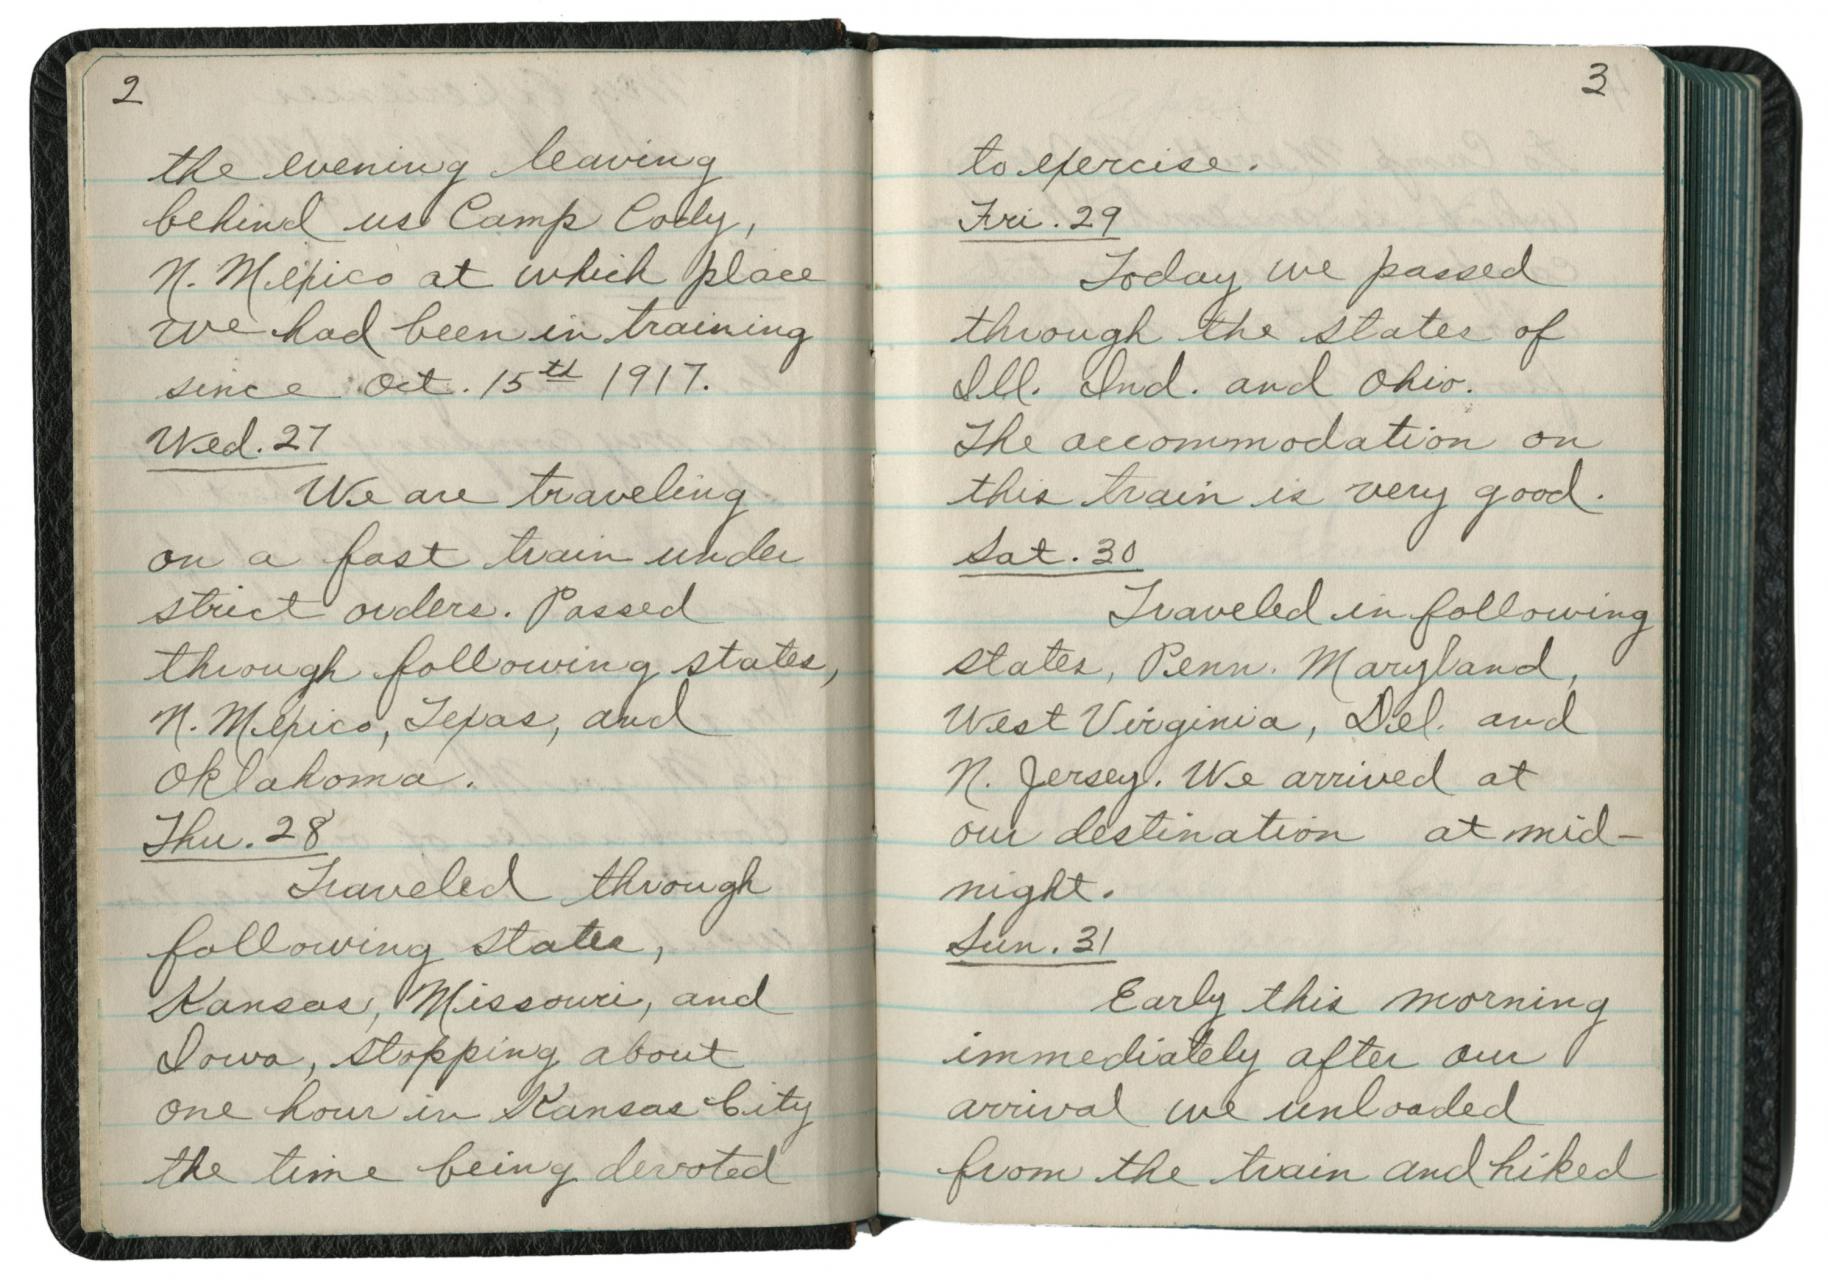 2
the evening leaving
behind us Camp Cody,
N. Mexico at which place
we had been in training
since Oct. 15th 1917.
Wed. 27
We are traveling
on a fast train under
strict orders. Passed
through following states,
N. Mexico, Texas, and
Oklahoma.
Thu. 28
Traveled through
following states,
Kansas, Missouri, and
Iowa, stopping about
one hour in Kansas City
the time being devoted
3
to exercise.
Fri. 29
Today we passed
through the states of
Ill. Ind. and Ohio.
The accommodation on
this train is very good.
Sat. 30
Traveled in following
states, Penn. Maryland,
West Virginia, Del. and
N. Jersey. We arrived at
our destination at mid-
night.
Sun. 31
Early this morning
immediately after our
arrival we unloaded
from the train and hiked